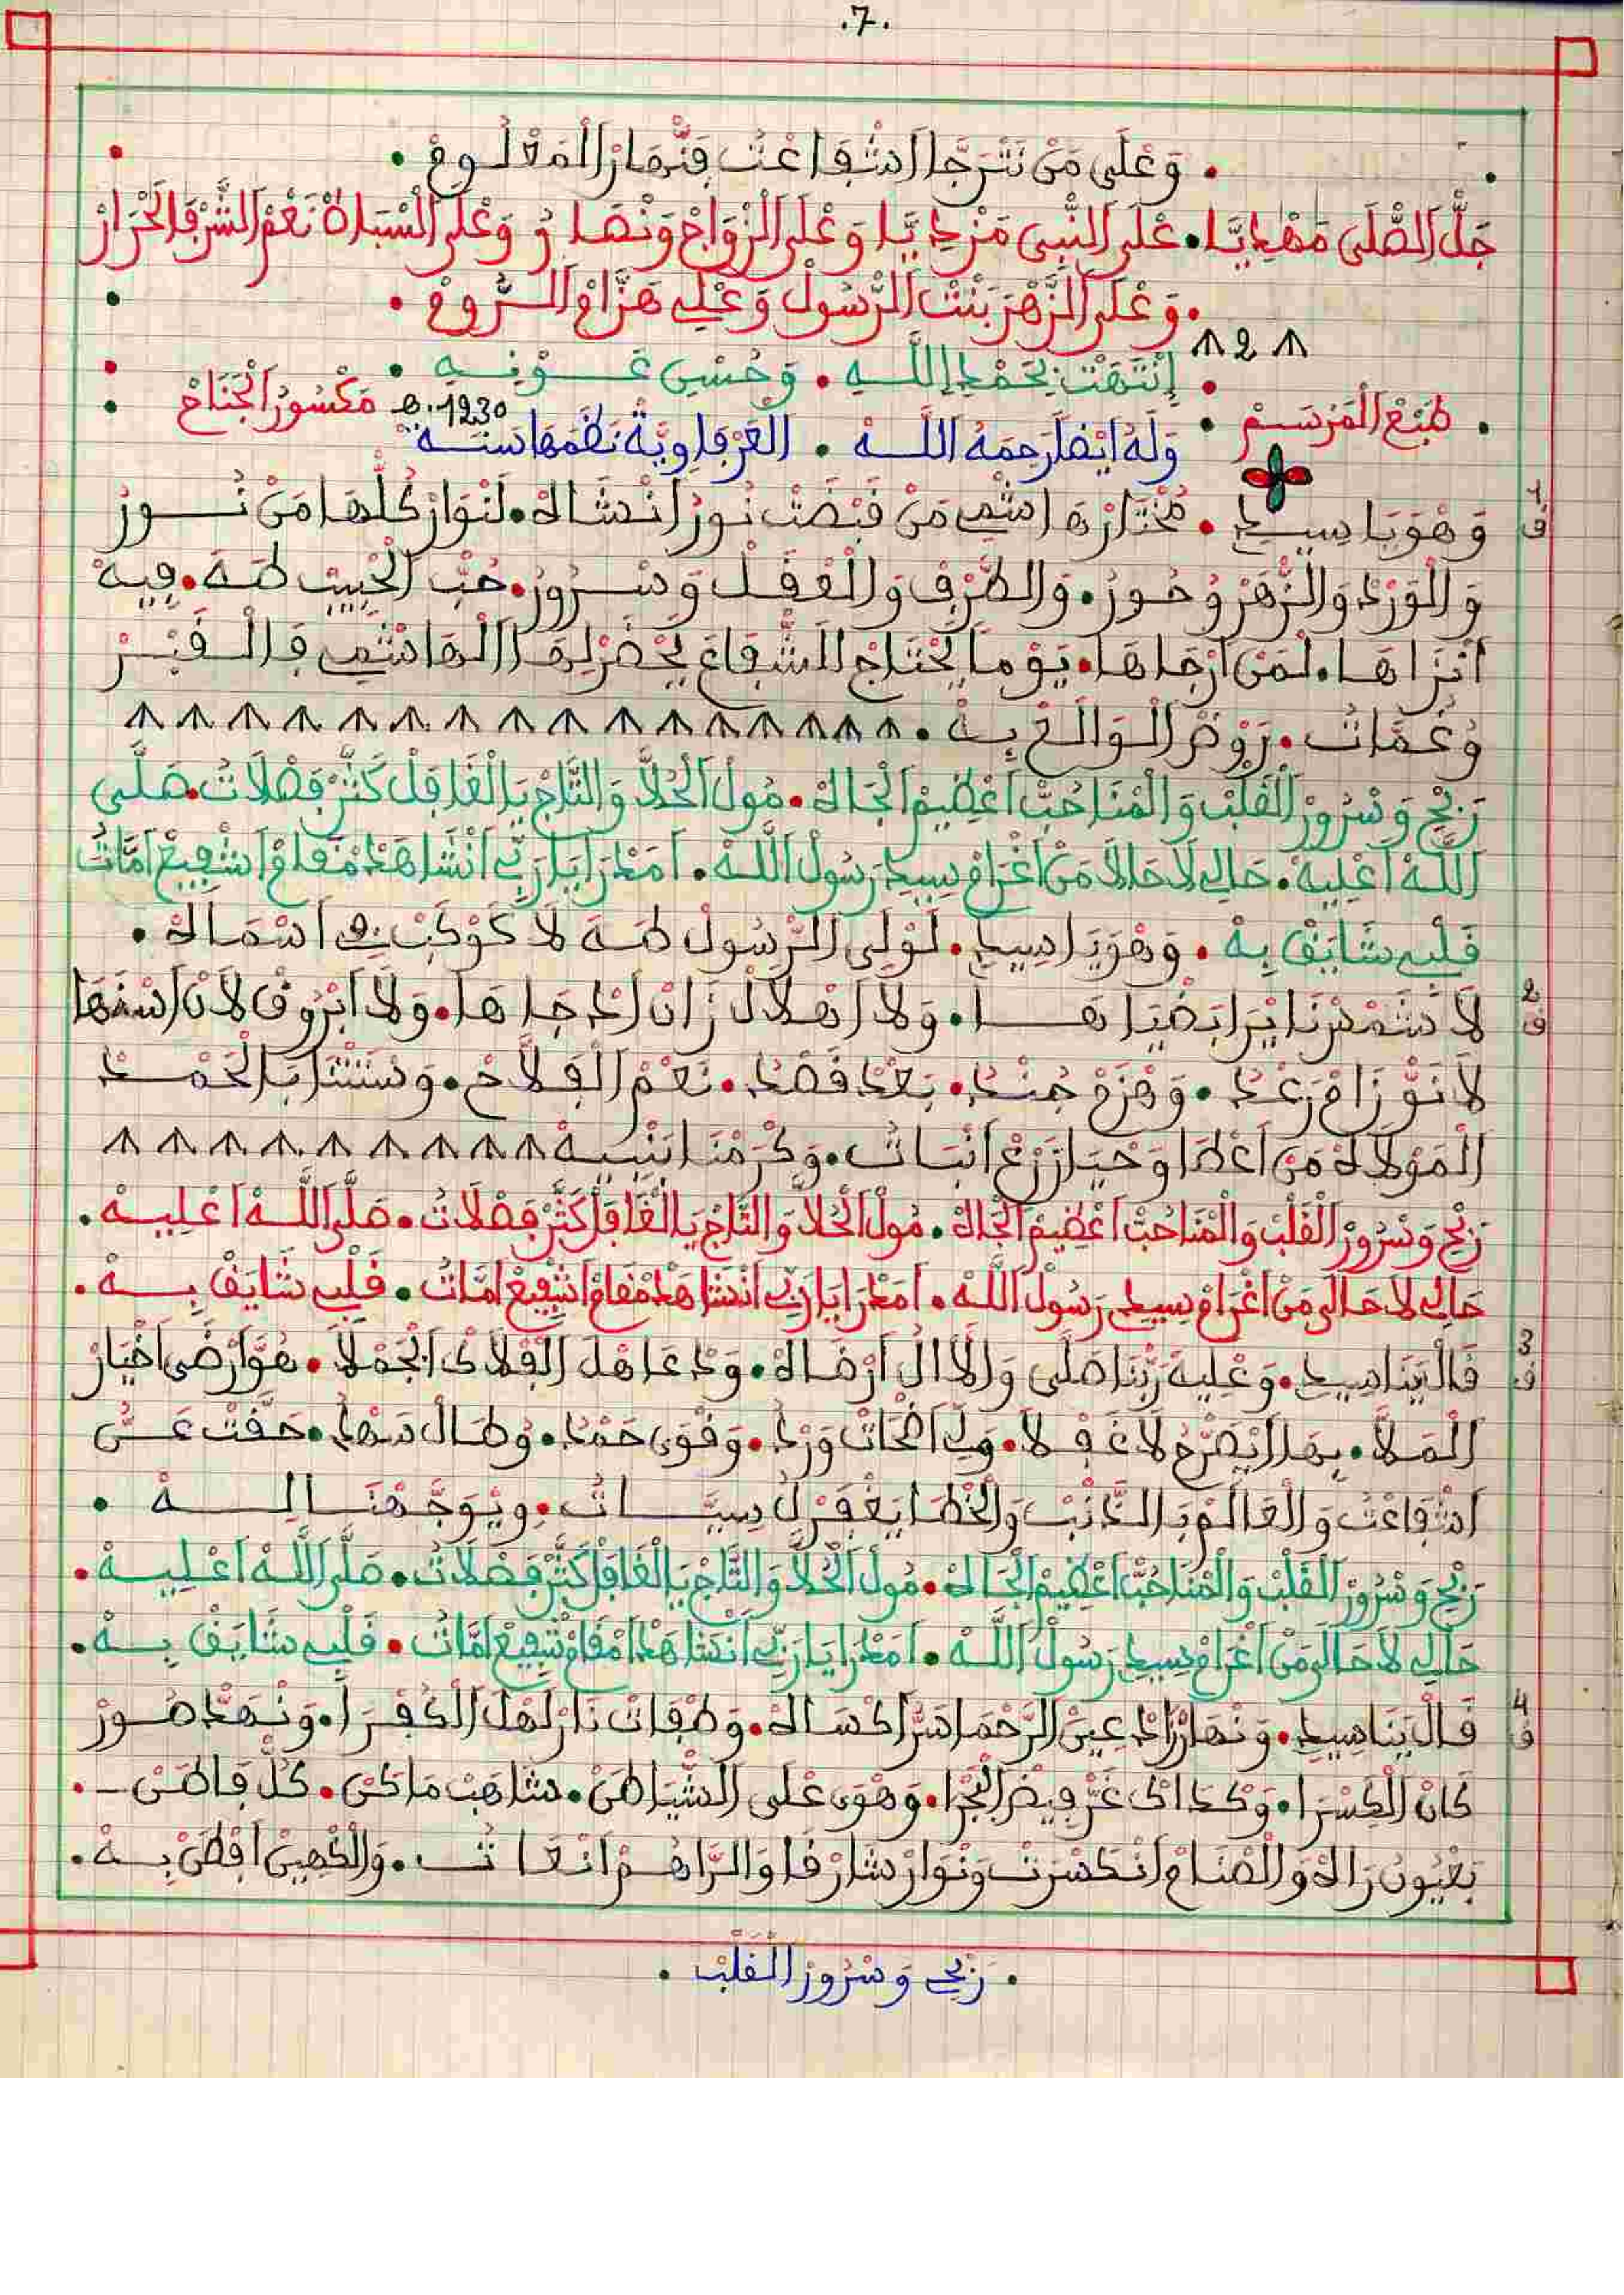 .7.
. وَعْلَى مَنْ نَتْرَجَّا اشْفَاعْتُ فِنْهَارْ الْمَعْلُومْ .
جَلّْ الصّْلَى مَهْدِيَّا. عْلَى النّْبِي مَزْيدِيَّا وَعْلَى الزْوَاجْ وَنْصَارُ وَعْلَى السْيَادْ نَعْمْ الشّْرْفَا الْحْرَارْ
. وَعْلَى الزَّهْرَ بَنْتْ الرَّسُولْ وَعْلِي هَزَّامْ الرُّومْ .
2
إِنْتَهَتْ بِحَمْدِ اللَّهِ . وَحُسْنِ عَوْنِهِ .
. طَبْعْ الْمَرْسَمْ . وَلَهُ أَيْضًا رَحِمَهُ اللَّه . الغَرْفَاوِيَّة نَظَمَهَا سَنَة 1230 هـ. مَكْسُورْ الْجْنَاحْ
1 ف وَهْوَ يَا سِيدِي . مُخْتَارْ هَاشْمِي مَنْ قَبْضَتْ نُورْ انْشَاهْ. لَنْوَارْ كُلّْهَا مَنْ نُورْ
وَالْوَرْدْ وَالزّْهَرْ وُحُورْ. وَالطَّرْفْ وَالْعْقَلْ وَسْرُورْ. حُبّْ الْحْبِيبْ طَهَ. فِيهْ
انْزَاهَا. لَمَنْ ارْجَاهَا. يَوْمَا يَحْتَاجْ الشّْفَاعَ يَحْضَرْ لِهَا الْهَاشْمِي فَالْقْبَرْ
وُغَمَّاتُ. رَوْضْ الْوَالَعْ بِهْ .
رَبْحْ وَسْرُورْ الْقَلْبْ وَالْمْنَا حُبّْ اعْظِيمْ الْجَاهْ. مُولْ الْحُلَّا وَالتَّاجْ يَا الْغَافَلْ كَثَّرْ فَصْلَاتُ. صَلَّى
اللَّهْ اعْلِيهْ. حَالِي لَا حَالَا مَنْ اغْرَامْ سِيدِي رَسُولْ اللَّهْ. امْدْرَا يَا رَبِّي انْشَاهَدْ مْقَامْ اشْفِيعْ امَّاتُ
قَلْبِي شَايَقْ بِهْ . وَهْوَ يَا سِيدِي. لَوْلَى الرّْسُولْ طَهَ لَا كَوْكَبْ فِي اسْمَاهْ .
2 ف لَا شَمْسْ نَايْرَا بَضْيَاهَا. وَلَا اهْلَالْ زَانْ ادْجَاهَا. وَلَا ابْرُوقْ لَانْ اسْنَهَا
لَا نَوّْ زَامْ رَعْدُ . وَهْزَمْ جُنْدُ. بَعْدْ قَصْدُ. نَعْمْ الْفْلَاحْ. وَسْتَنْشَا بَالْحَمْدْ
الْمَوْلَاهْ مَنْ اعْطَا وَحْيَا زَرْعْ انْبَاتُ. وَكْرَمْنَا بَنْبِيهْ
رَبْحْ وَسْرُورْ الْقَلْبْ وَالْمْنَا حُبّْ اعْظِيمْ الْجَاهْ. مُولْ الْحُلَّا وَالتَّاجْ يَا الْغَافَلْ كَثَّرْ فَصْلَاتُ. صَلَّى اللَّهْ اعْلِيهْ.
حَالِي لَا حَالَى مَنْ اغْرَامْ سِيدِي رَسُولْ اللَّهْ. امْدْرَا يَا رَبِّي انْشَاهَدْ مْقَامْ اشْفِيعْ امَّاتُ. قَلْبِي شَايَقْ بِهْ.
3 ف قَالْ يَنَا سِيدِي. وَعْلِيهْ رَبّْنَا صَلَّى وَالْأَالْ ارْضَاهْ. وَدْعَا هْلْ الْفْلَاكْ الْجَمْلَا. هُوَّ ارْضَى اخْيَارْ
الْمَلَّا. بِهَا ايْصَرَّحْ لَا غَفْلَا. وِلِي اضْحَاتْ وَرْدُ. وَقْوَى حَمْدُ. وُطَالْ سَهْدُ. حَقَّتْ عَنُّ
اشْفَاعْتُ وَالْعَالَمْ بَالذَّنْبْ وَالْخْطَا يَغْفَرْ لُ سِيَّاتُ. وِيْوَجَّهْنَا لِهْ .
رَبْحْ وَسْرُورْ الْقَلْبْ وَالْمْنَا حُبّْ اعْظِيمْ الْجَاهْ. مُولْ الْحُلَّا وَالتَّاجْ يَا الْغَافَلْ كَثَّرْ فَصْلَاتُ. صَلَّى اللَّهْ اعْلِيهْ.
حَالِي لَا حَالَى مَنْ اغْرَامْ سِيدِي رَسُولْ اللَّهْ. امْدْرَا يَا رَبِّي انْشَاهَدْ امْقَامْ شْفِيعْ امَّاتُ. قَلْبِي شَايَقْ بِهْ.
4 ف قَالْ يَنَا سِيدِي. وَنْهَارْ زَادْ عِينْ الرَّحْمَا سَرّْ اكْسَاهْ. وَطْفَاتْ نَارْ لَهْلْ الْكُفْرَا. وَنْهَدّْ صُورْ
كَانْ الْكِسْرَا. وَكْدَاكْ غَرّْ فِيضْ الْبْحْرَا. وَهْوَى عْلَى الشّْيَاطَنْ. شَاهَبْ مَاكَنْ. كُلّْ فَاطَنْ.
بَعْيُونْ رَاهْ وَالصْنَامْ انْكَسْرَتْ وَنْوَارْ شَارْقَا وَالرَّاهَمْ انْعَاتُ. وَالْكْهِينْ افْطَنْ بِهْ.
. رَبْحِي وَسْرُورْ الْقَلْبْ .